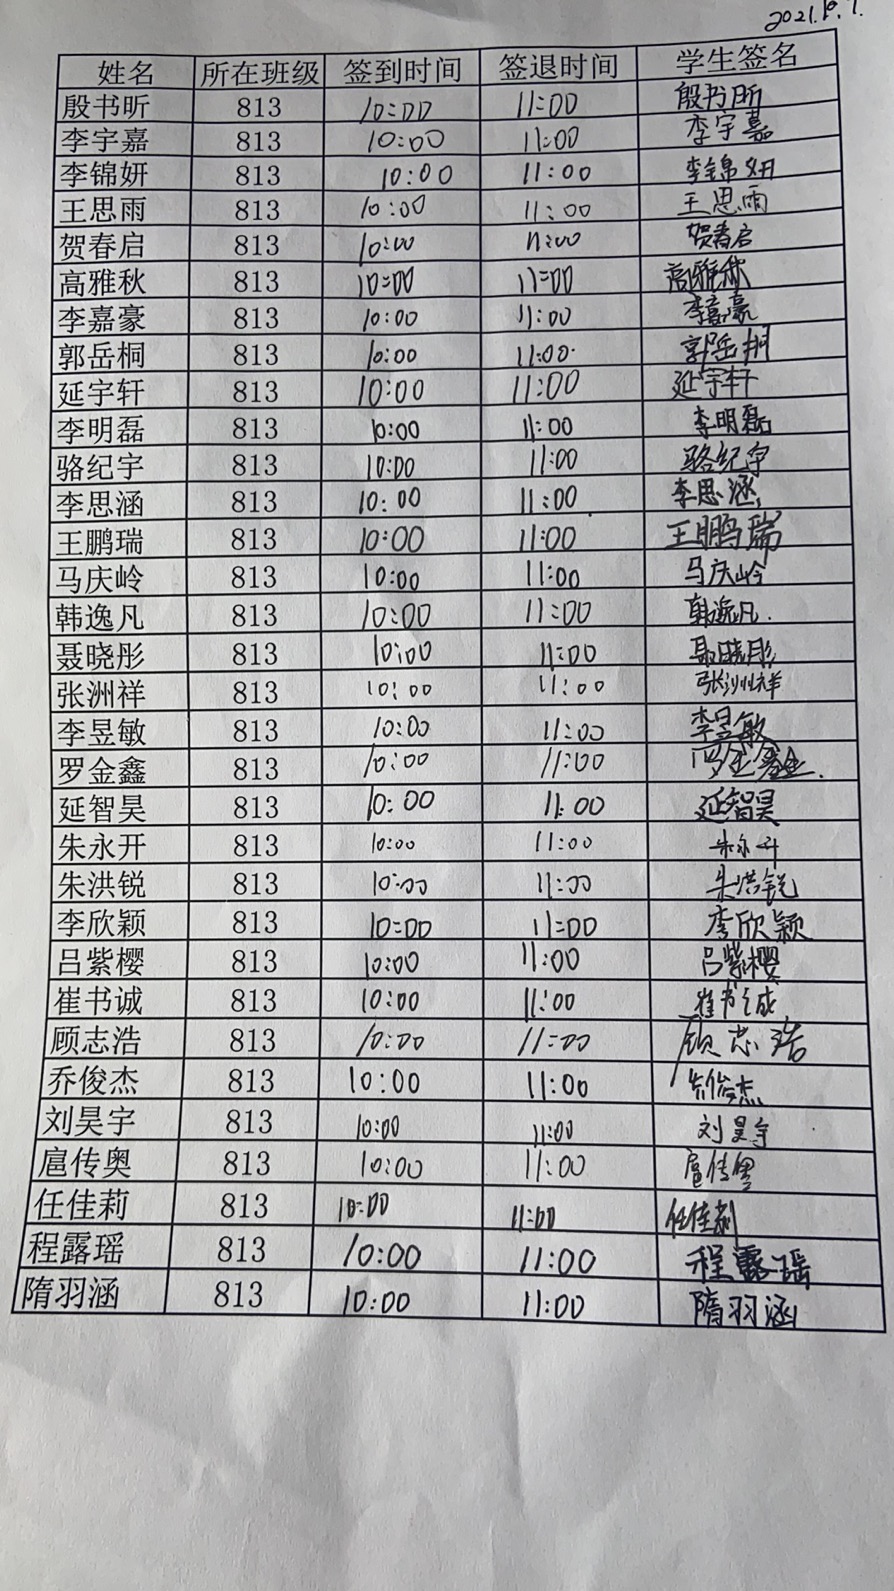 2021.10.7.
姓名 所在班级 签到时间 签退时间 学生签名
殷书昕 813 10:00 11:00 殷书昕
李宇嘉 813 10:00 11:00 李宇嘉
李锦妍 813 10:00 11:00 李锦妍
王思雨 813 10:00 11:00 王思雨
贺春启 813 10:00 11:00 贺春启
高雅秋 813 10:00 11:00 高雅秋
李嘉豪 813 10:00 11:00 李嘉豪
郭岳桐 813 10:00 11:00 郭岳桐
延宇轩 813 10:00 11:00 延宇轩
李明磊 813 10:00 11:00 李明磊
骆纪宇 813 10:00 11:00 骆纪宇
李思涵 813 10:00 11:00 李思涵
王鹏瑞 813 10:00 11:00 王鹏瑞
马庆岭 813 10:00 11:00 马庆岭
韩逸凡 813 10:00 11:00 韩逸凡.
聂晓彤 813 10:00 11:00 聂晓彤
张洲祥 813 10:00 11:00 张洲祥
李昱敏 813 10:00 11:00 李昱敏
罗金鑫 813 10:00 11:00 罗金鑫.
延智昊 813 10:00 11:00 延智昊
朱永开 813 10:00 11:00 朱永开
朱洪锐 813 10:00 11:00 朱洪锐
李欣颖 813 10:00 11:00 李欣颖
吕紫樱 813 10:00 11:00 吕紫樱
崔书诚 813 10:00 11:00 崔书诚
顾志浩 813 10:00 11:00 顾志浩
乔俊杰 813 10:00 11:00 乔俊杰
刘昊宇 813 10:00 11:00 刘昊宇
扈传奥 813 10:00 11:00 扈传奥
任佳莉 813 10:00 11:00 任佳莉
程露瑶 813 10:00 11:00 程露瑶
隋羽涵 813 10:00 11:00 隋羽涵